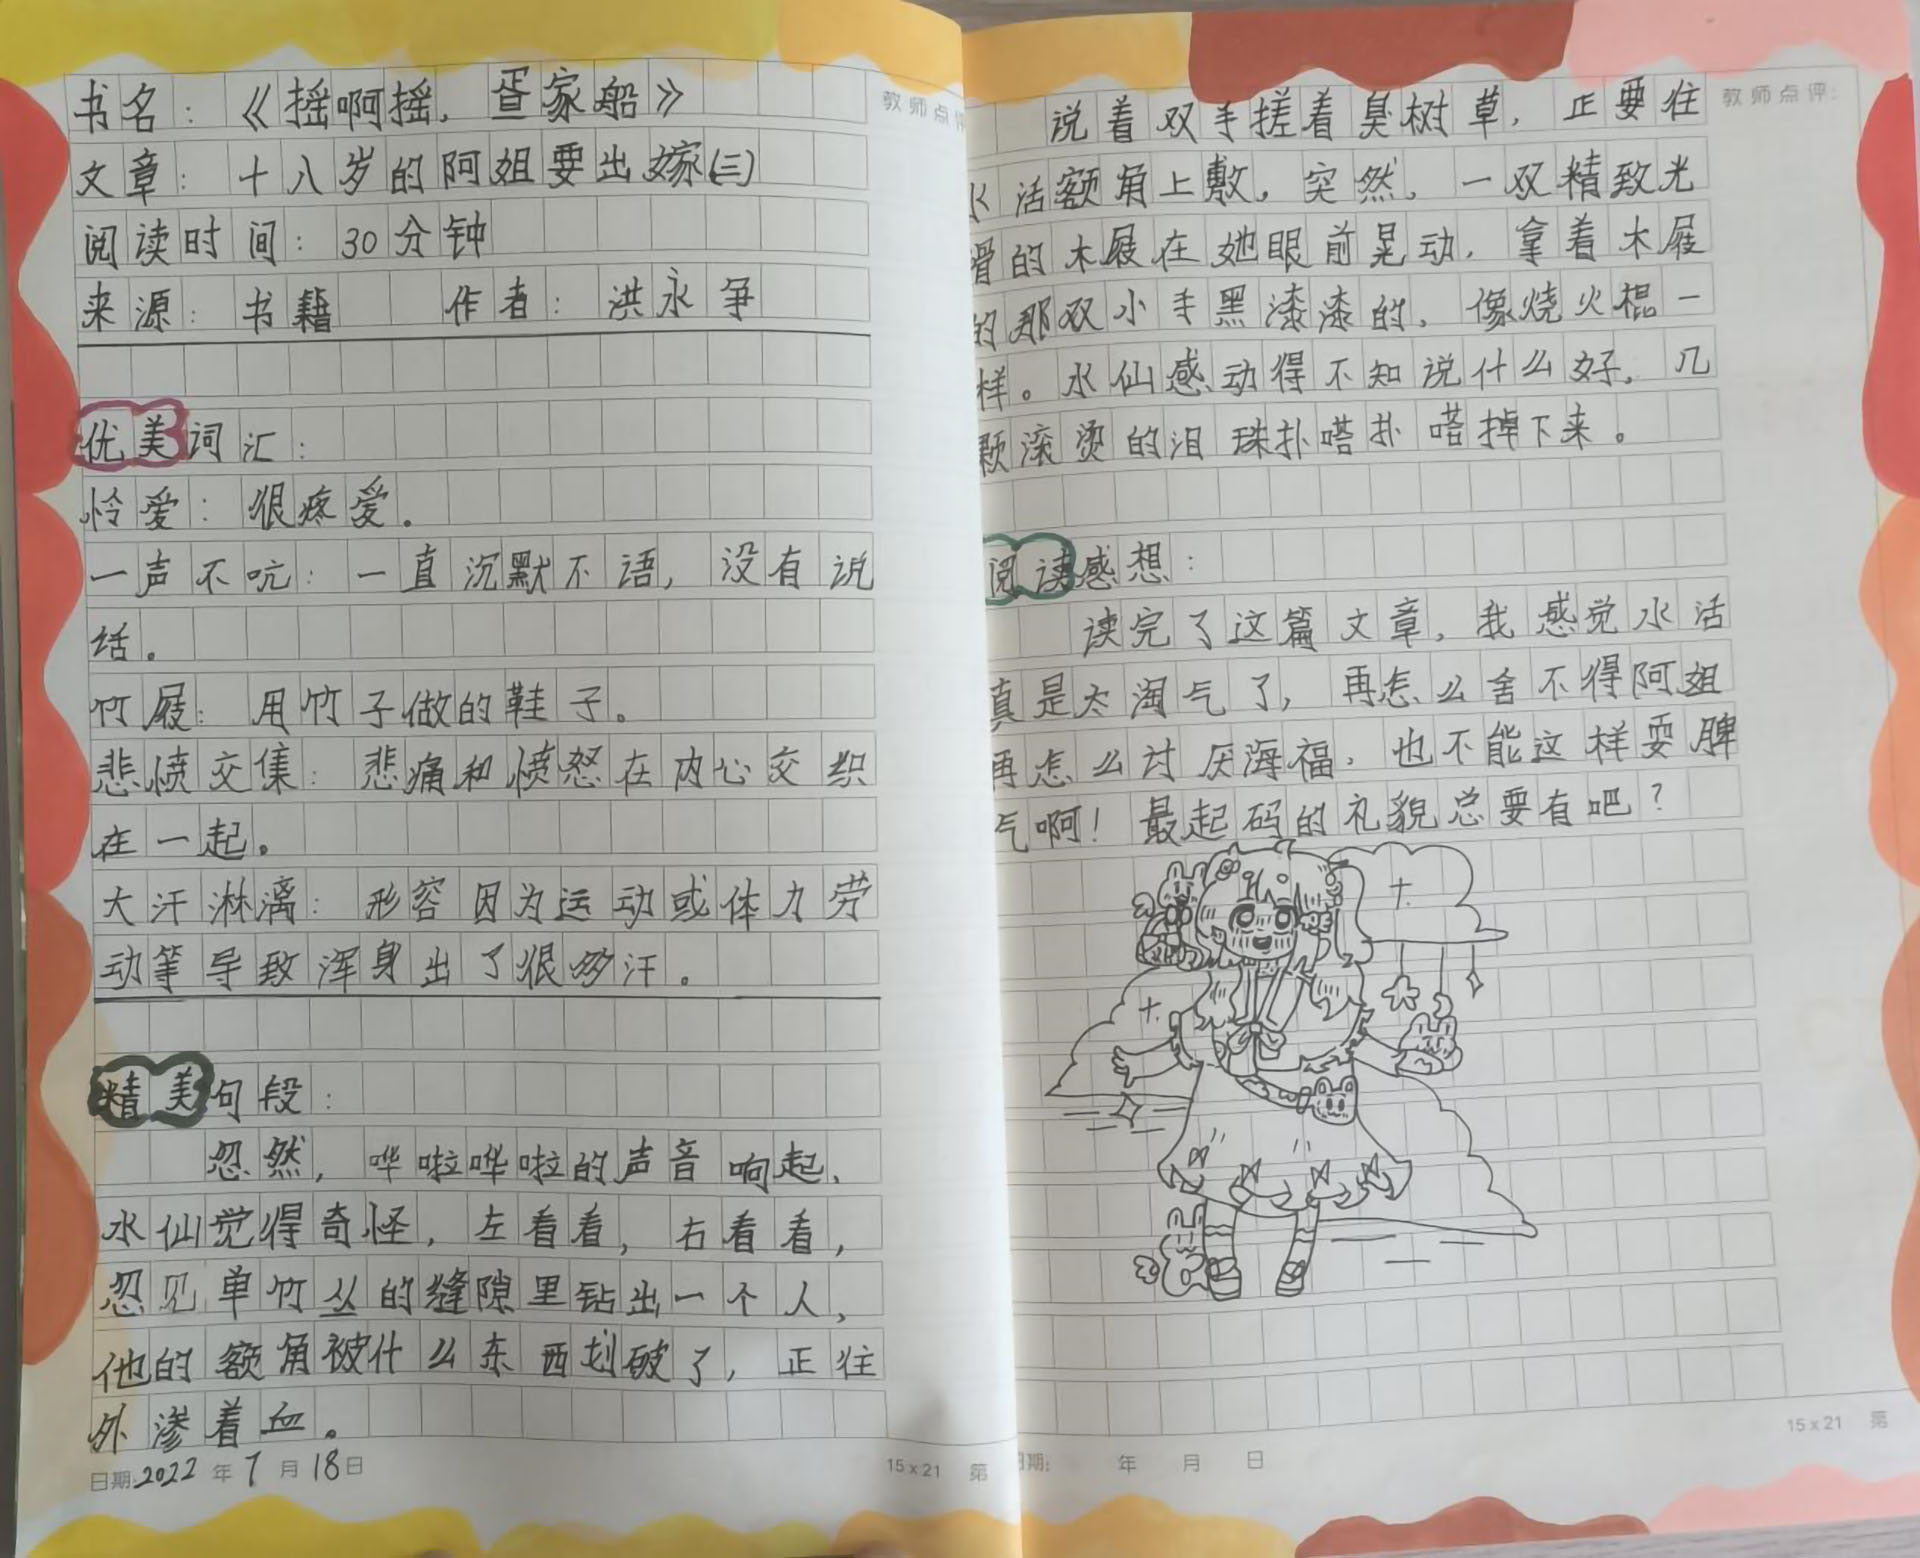 书名:《摇啊摇,疍家船》
文章:十八岁的阿姐要出嫁(三)
阅读时间:30分钟
来源:书籍 作者:洪永争
优美词汇:
怜爱:很疼爱。
一声不吭:一直沉默不语,没有说
话。
竹屐:用竹子做的鞋子。
悲愤交集:悲痛和愤怒在内心交织
在一起。
大汗淋漓:形容因为运动或体力劳
动等导致浑身出了很多汗。
精美句段:
忽然,哗啦哗啦的声音响起,
水仙觉得奇怪,左看看,右看看,
忽见单竹丛的缝隙里钻出一个人,
他的额角被什么东西划破了,正往
外渗着血。
日期:2022年7月18日
15x21 第
教师点评
说着双手搓着臭树草,正要往
水活额角上敷。突然,一双精致光
滑的木屐在她眼前晃动,拿着木屐
的那双小手黑漆漆的,像烧火棍一
样。水仙感动得不知说什么好,几
颗滚烫的泪珠扑嗒扑嗒掉下来。
阅读感想:
读完了这篇文章,我感觉水活
真是太淘气了,再怎么舍不得阿姐
再怎么讨厌海福,也不能这样耍脾
气啊!最起码的礼貌总要有吧?
教师点评:
日期: 年 月 日
15x21 第